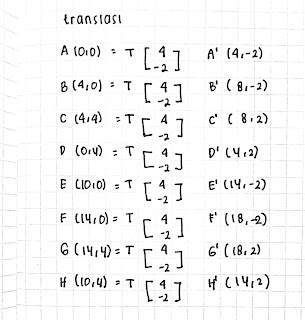 translasi
A (0,0) = T [4 -2] A' (4,-2)
B (4,0) = T [4 -2] B' (8,-2)
C (4,4) = T [4 -2] C' (8,2)
D (0,4) = T [4 -2] D' (4,2)
E (10,0) = T [4 -2] E' (14,-2)
F (14,0) = T [4 -2] F' (18,-2)
G (14,4) = T [4 -2] G' (18,2)
H (10,4) = T [4 -2] H' (14,2)